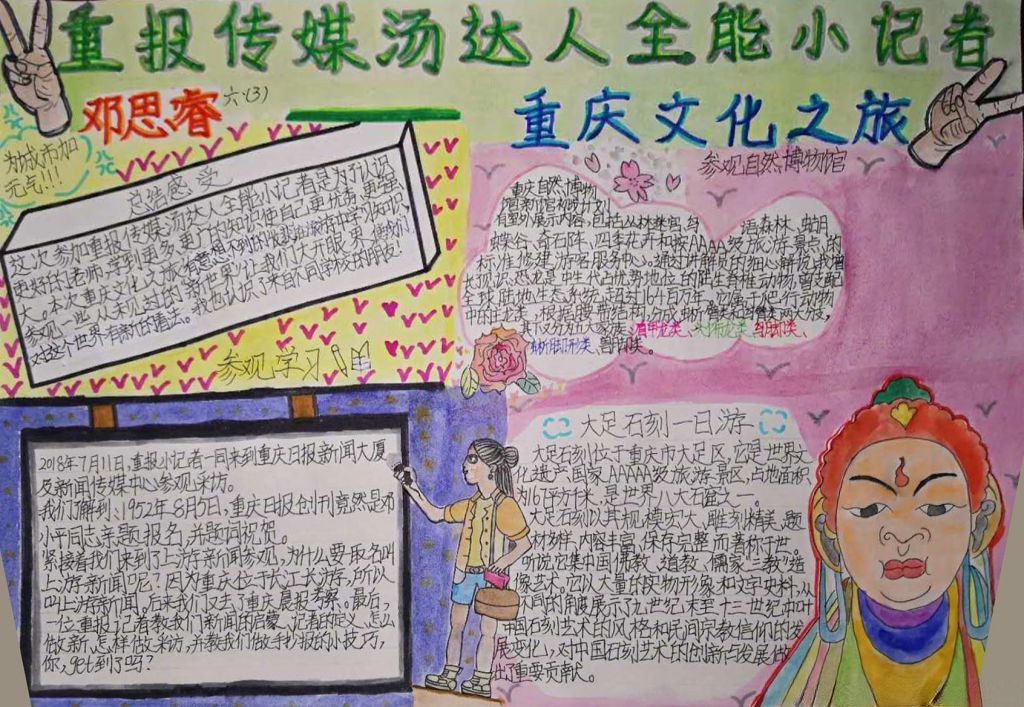 重报传媒汤达人全能小记者
邓思睿 六·(3)
重庆文化之旅
为城市加
元气!!!
总结感受
这次参加重报传媒汤达人全能小记者是为了认识
更好的老师,学到更多、更广的知识,也使自己更优秀、更强
大。本次重庆文化之旅,有意想不到的收获,在旅游中学习知识,
参观一些从未见过的新世界,让我们大开眼界,
对这个世界有新的看法。我也认识了来自不同学校的朋友!
参观学习
2018年7月11日,重报小记者一同来到重庆日报新闻大厦
及新闻传媒中心参观采访。
我们了解到:1952年8月5日,重庆日报创刊竟然是邓
小平同志亲题报名,并题词祝贺。
紧接着我们来到了上游新闻参观,为什么要取名叫
上游新闻呢?因为重庆位于长江上游,所以
叫上游新闻。后来我们又去了重庆晨报考察。最后,
一位重报记者教我们新闻的启蒙、记者的定义、怎么
做新,怎样做采访,并教我们做手抄报的小技巧,
你,get到了吗?
参观自然博物馆
重庆自然博物
馆新馆初步计划
有室外展示内容,包括丛林
蝶谷、奇石阵、四季花卉和按AAAA级旅游景点的
标准修建游客服务中心。通过讲解员的细心解说,我增
长见识:恐龙是中生代占优势地位的陆生脊椎动物,曾支配
全球陆地生态系统超过1.6亿百万年。它属于爬行动物
中的主龙类,根据腰带结构分成蜥臀类和鸟臀类两大类,
其下又分为五大家族:有甲龙类、
兽脚类。
大足石刻一日游
大足石刻位于重庆市大足区,它是世界文
化遗产、国家AAAAA级旅游景区,占地面积
为167平方千米,是世界八大石窟之一。
大足石刻以其规模宏大,雕刻精美,题
材多样,内容丰富,保存完整而著称于世。
听说它集中国佛教、道教、儒家“三教”造
像艺术。它以大量的实物形象和文字史料,从
不同的角度展示了九世纪末至十三世纪中叶
中国石刻艺术的风格和民间宗教信仰的发
展变化,对中国石刻艺术的创新与发展做
出了重要贡献。